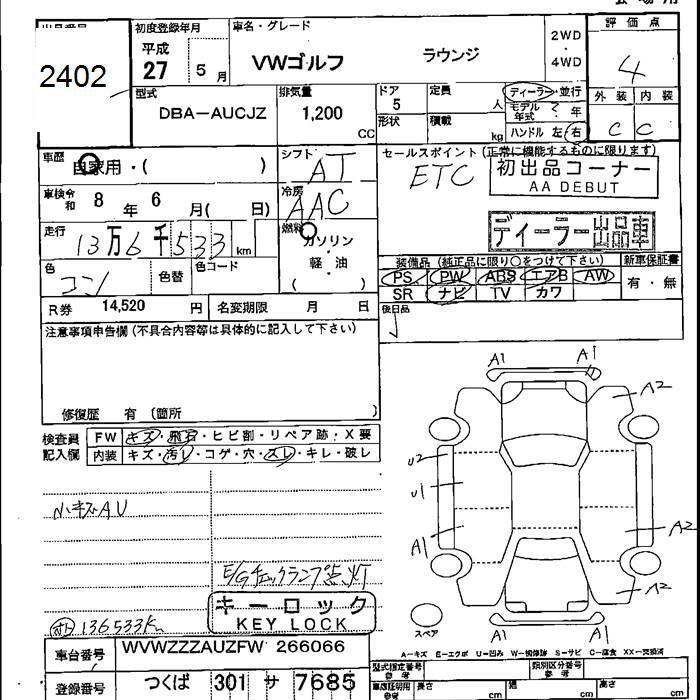 2402
初度登録年月
平成
27 5月
車名・グレード
VWゴルフ ラウンジ
2WD
・
4WD
評価点
4
型式
DBA-AUCJZ
排気量
1,200
CC
ドア
5
形状
定員
人
積載
kg
ディーラー・並行
モデル年式 ? 年
ハンドル 左・右
外装 内装
C C
車歴
自家用・( )
シフト
AT
セールスポイント(正常に機能するものに限ります)
ETC
初出品コーナー
AA DEBUT
車検 令和 8年 6月( 日)
冷房
AAC
ディーラー出品車
走行
13万6千533km
燃料
ガソリン
・
軽・油
( )
色
コン
色替
色コード
装備品(純正品に限り○をつけて下さい)
新車保証書
PS PW ABS エアB AW
有・無
SR ナビ TV カワ
R券 14,520 円
名変期限 月 日
後日品
注意事項申告欄(不具合内容等は具体的に記入して下さい)
修復歴 有(箇所 )
検査員
記入欄
FW キズ・飛石・ヒビ割・リペア跡・X要
内装 キズ・汚レ・コゲ・穴・ズレ・キレ・破レ
A1 A1
A2
U2
U1
A1
A2
A2
A1
小キズAU
E/Gチェックランプ点灯
136533Km
キーロック
KEY LOCK
スペア
A-キズ E-エクボ U-凹ミ W-補修跡 S-サビ C-腐食 XX-交換済
車台番号 WVWZZZAUZFW 266066
登録番号 つくば 301 サ 7685
型式指定番号
参考
類別区分番号
参考
車庫証明用
参考
長さ cm
幅 cm
高さ cm